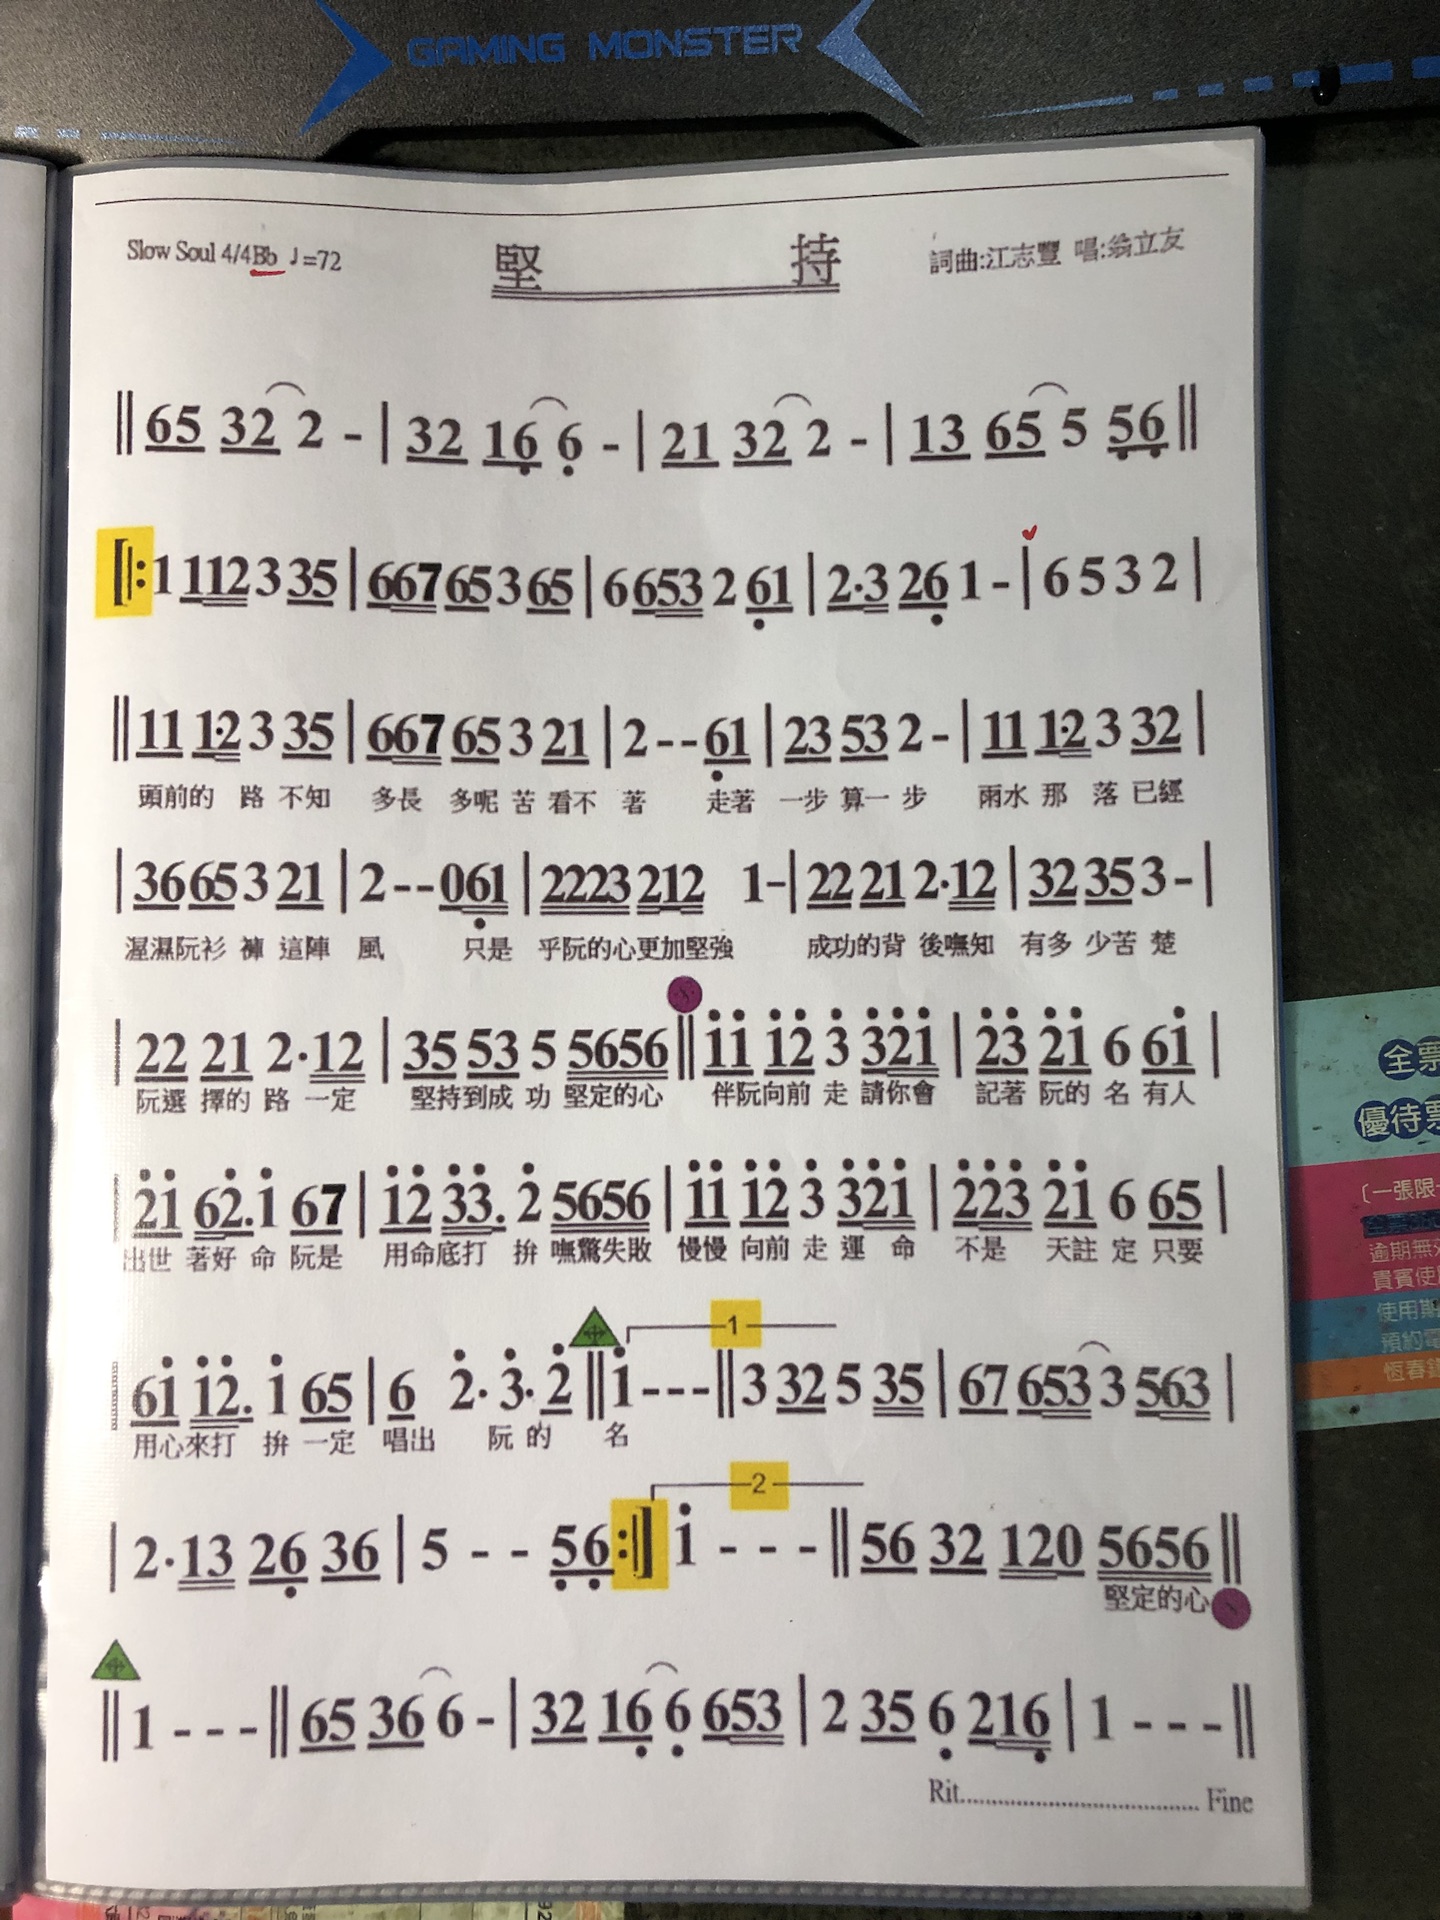 GAMING MONSTER
Slow Soul 4/4 Bb ♩=72
堅 持
詞曲:江志豐 唱:翁立友
‖ 65 32 2 - | 32 16 6 - | 21 32 2 - | 13 65 5 56 ‖
[|: 1 112 3 35 | 667 65 3 65 | 6 653 2 61 | 2·3 26 1 - | 6 5 3 2 |
‖ 11 1·2 3 35 | 667 65 3 21 | 2 - - 61 | 23 53 2 - | 11 1·2 3 32 |
頭前的 路 不知 多長 多呢 苦 看不 著 走著 一步 算一 步 雨水 那 落 已經
| 36 65 3 21 | 2 - - 061 | 2223 212 1 - | 22 21 2·12 | 32 35 3 - |
渥濕阮衫 褲 這陣 風 只是 乎阮的心更加堅強 成功的背 後嘸知 有多 少苦 楚
| 22 21 2·12 | 35 53 5 5656 ‖ i̇i̇ i̇2̇ 3̇ 3̇2̇i̇ | 2̇3̇ 2̇i̇ 6 6i̇ |
阮選 擇的 路 一定 堅持到成 功 堅定的心 伴阮向前 走 請你會 記著 阮的 名 有人
| 2̇i̇ 62̇.i̇ 67 | i̇2̇ 3̇3̇. 2̇ 5656 | i̇i̇ i̇2̇ 3̇ 3̇2̇i̇ | 2̇2̇3̇ 2̇i̇ 6 65 |
出世 著好 命 阮是 用命底打 拚 嘸驚失敗 慢慢 向前 走 運 命 不是 天註 定 只要
1
| 6i̇ i̇2̇. i̇ 65 | 6 2̇· 3̇· 2̇ ‖ i̇ - - - ‖ 3 32 5 35 | 67 653 3 563 |
用心來打 拚 一定 唱出 阮 的 名
2
| 2·13 26 36 | 5 - - 56 :|] i̇ - - - ‖ 56 32 120 5656 ‖
堅定的心
‖ 1 - - - ‖ 65 36 6 - | 32 16 6 653 | 2 35 6 216 | 1 - - - ‖
Rit.................................... Fine
全票
優待票
(一張限
逾期無
貴賓使
使用期
預約電
恆春鎮